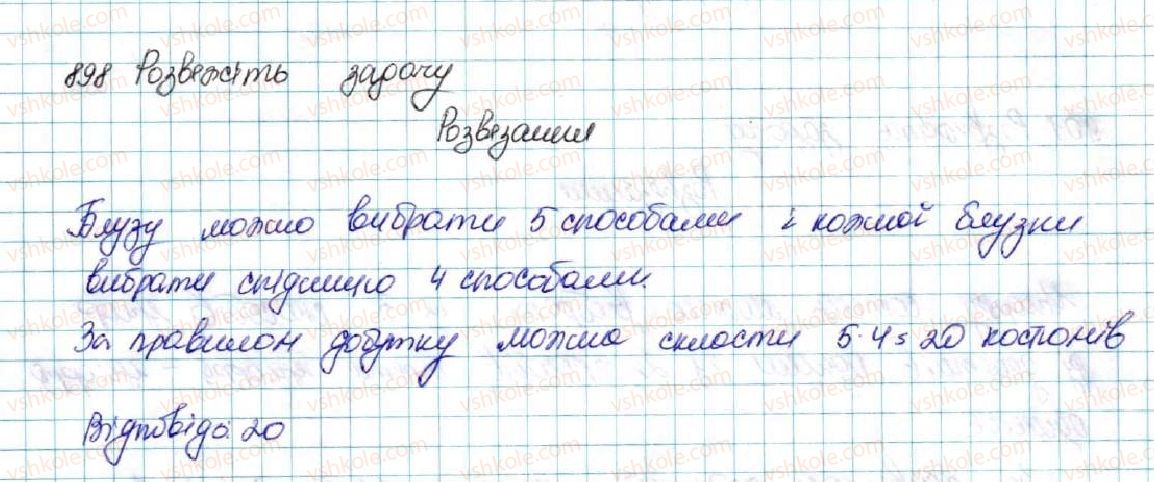 898 Розвяжіть задачу
Розвязання
Блузу можно вибрати 5 способами і кожной блузки
вибрати спідницю 4 способами.
За правилом добутку можна скласти 5·4=20 костюмів
Відповідь: 20